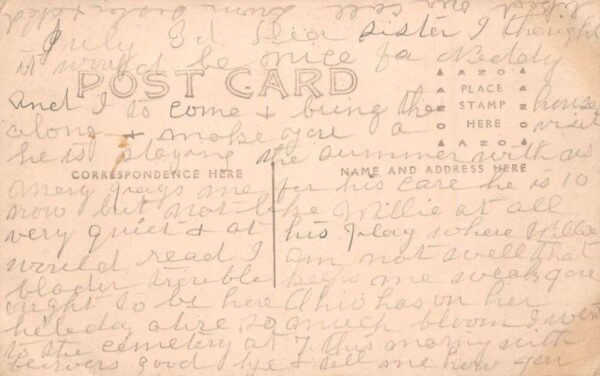 July 3d dear sister I thought
it would be nice for Neddy
POST CARD
and I to come & bring the house
along & make you a visit
AZO
PLACE
STAMP
HERE
AZO
he is staying the summer with us
CORRESPONDENCE HERE
NAME AND ADDRESS HERE
mery pays me for his care he is 10
now but not like Willie at all
very quiet & at his play where Willie
would read I am not well that
blader trouble keeps me weak you
ought to be here Ohio has on her
holeday atire so much bloom I went
to the cemetery at 7 this morny with
good bye & tell me how you